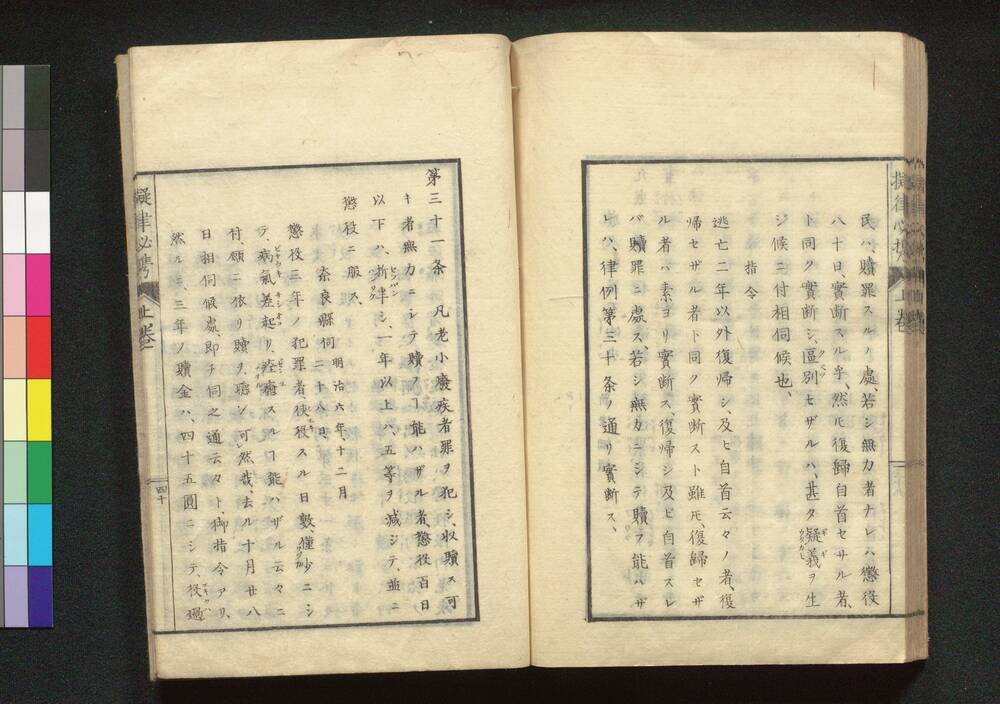 民ハ、贖罪スルノ處、若シ無力者ナレハ懲役
八十日、實断スル乎、然ℸ復歸自首セサル者、
ト同ク實断シ、區別セザルハ、甚タ疑義ヲ生
ジ候ニ付相伺候也、
指令
逃亡二年以外復帰シ、及ヒ自首云々ノ者、復
帰セザル者ト同ク實断スト雖𪜈、復帰セザ
ル者ハ素ヨリ實断ス、復帰シ及ヒ自首スレ
バ贖罪ニ處ス、若シ無力ニシテ贖フ能ハザ
レハ、律例第三十条ノ通リ實断ス、
擬律必携
上巻
第三十一条 凡老小癈疾者罪ヲ犯シ、收贖ス可
キ者無力ニシテ贖フヿ能ハザル者、懲役百日
以下ハ、折半シ、一年以上ハ、五等ヲ減ジテ、並ニ
懲役ニ服ス、
奈良縣伺 明治六年、十二月二十八日
懲役三年ノ犯罪者使役スル日數、僅少ニシ
テ、病氣差起リ、痊癒スルヿ能ハザル云々ニ
付、願ニ依リ贖ヲ聴シ可然哉、去ル十月廿八
日相伺候處、即チ伺之通云々ト、御指令アリ、
然ルニ、三年ノ贖金ハ、四十五圓ニシテ、役過
擬律必携
上巻
四十